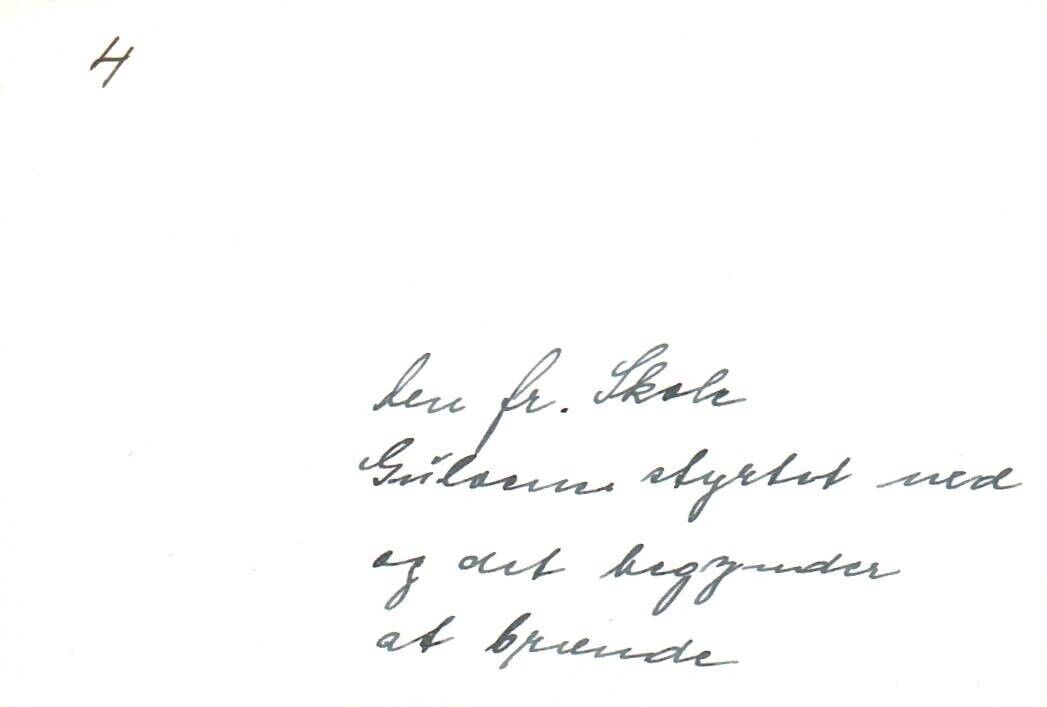 4
den fr. Skole
Gulvene styrtet ned
og det begynder
at brænde